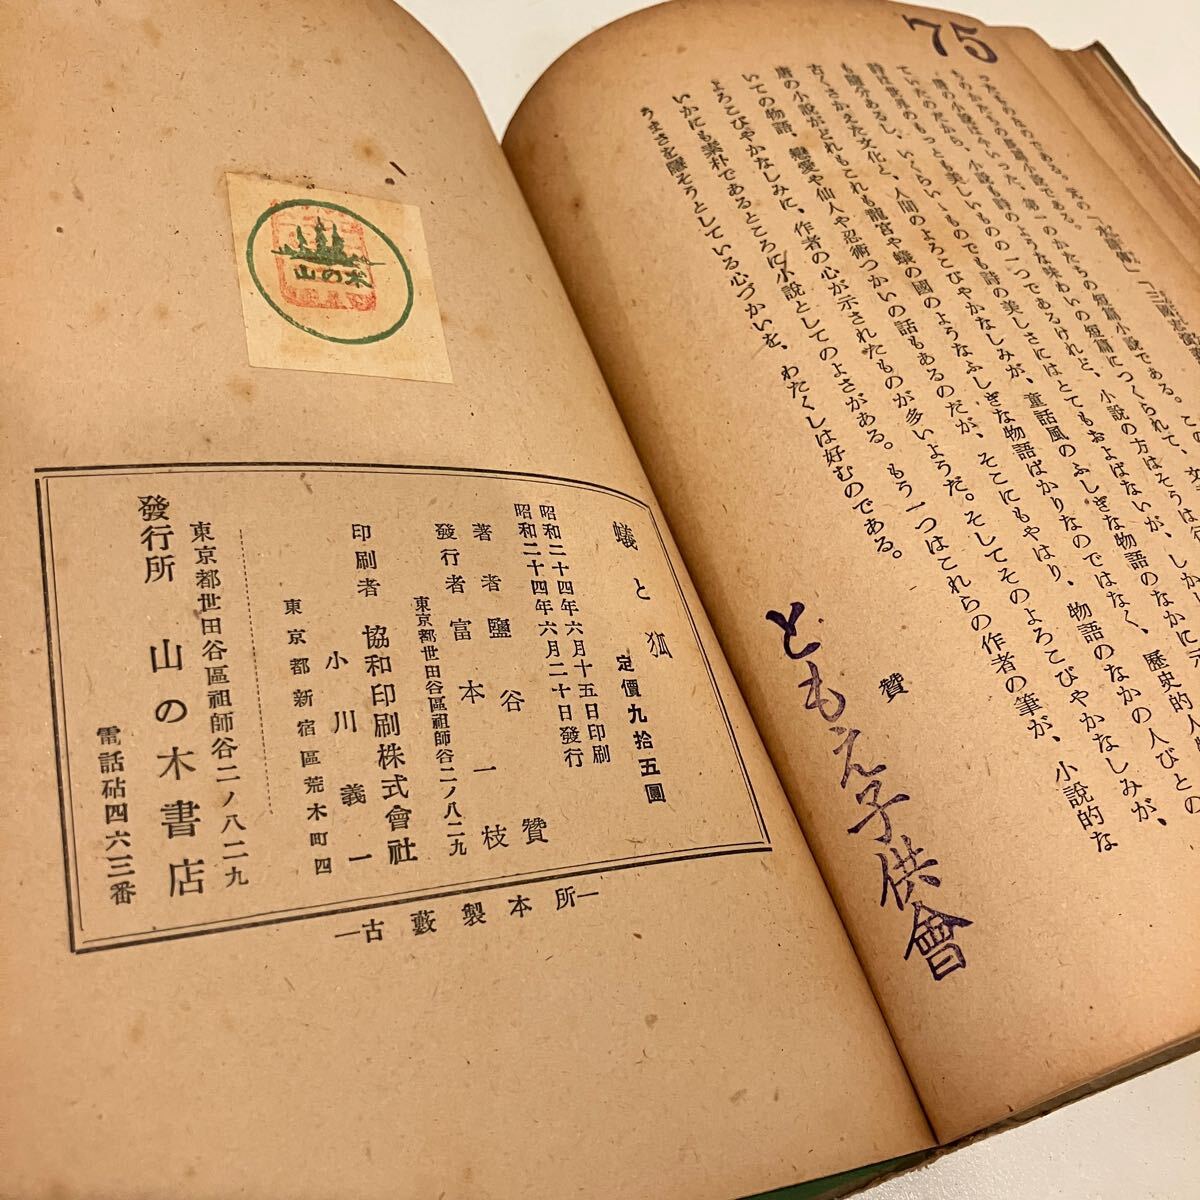 75
ったものなのである。
唐の小説は今いった、第一のかたちの短篇小説である。この、
ていたのだから、小説も詩のような味わいの短篇につくられて、
詩は世界のもっとも美しいものの一つであるけれど、小説の方はそうは行
も隨分あるし、いくらいゝものでも詩の美しさにはとてもおよばないが、しか
古くさかえた文化と、人間のよろこびやかなしみが、童話風のふしぎな物語のなかに
唐の小説がどれもこれも龍宮や蟻の國のようなふしぎな物語ばかりなのではなく、歴史的人
いての物語、戀愛や仙人や忍術つかいの話もあるのだが、そこにもやはり、物語のなかの人びとの
よろこびやかなしみに、作者の心が示されたものが多いようだ。そしてそのよろこびやかなしみが、
いかにも素朴であるところに小説としてのよさがある。もう一つはこれらの作者の筆が、小説的な
うまさを隱そうとしている心づかいを、わたくしは好むのである。
贊
ともえ子供會
山の木
蟻と狐
定價九拾五圓
昭和二十四年六月十五日印刷
昭和二十四年六月二十日發行
著者 鹽谷贊
發行者 富本一枝
東京都世田谷區祖師谷二ノ八二九
印刷者 協和印刷株式會社
小川義一
東京都新宿區荒木町四
東京都世田谷區祖師谷二ノ八二九
發行所 山の木書店
電話砧四六三番
―古藪製本所―